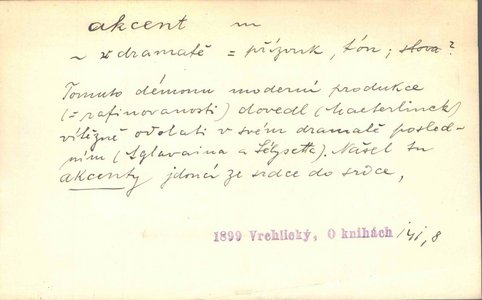 akcent m
~ v dramatě = přízvuk, tón; slova?
Tomuto démonu moderní produkce
(= rafinovanosti) dovedl (Maeterlinck)
vítězně odolati v svém dramatě posled-
ním (Aglavaina a Sélysetta). Našel tu
akcenty jdoucí ze srdce do srdce,
1899 Vrchlický, O knihách 141, 8